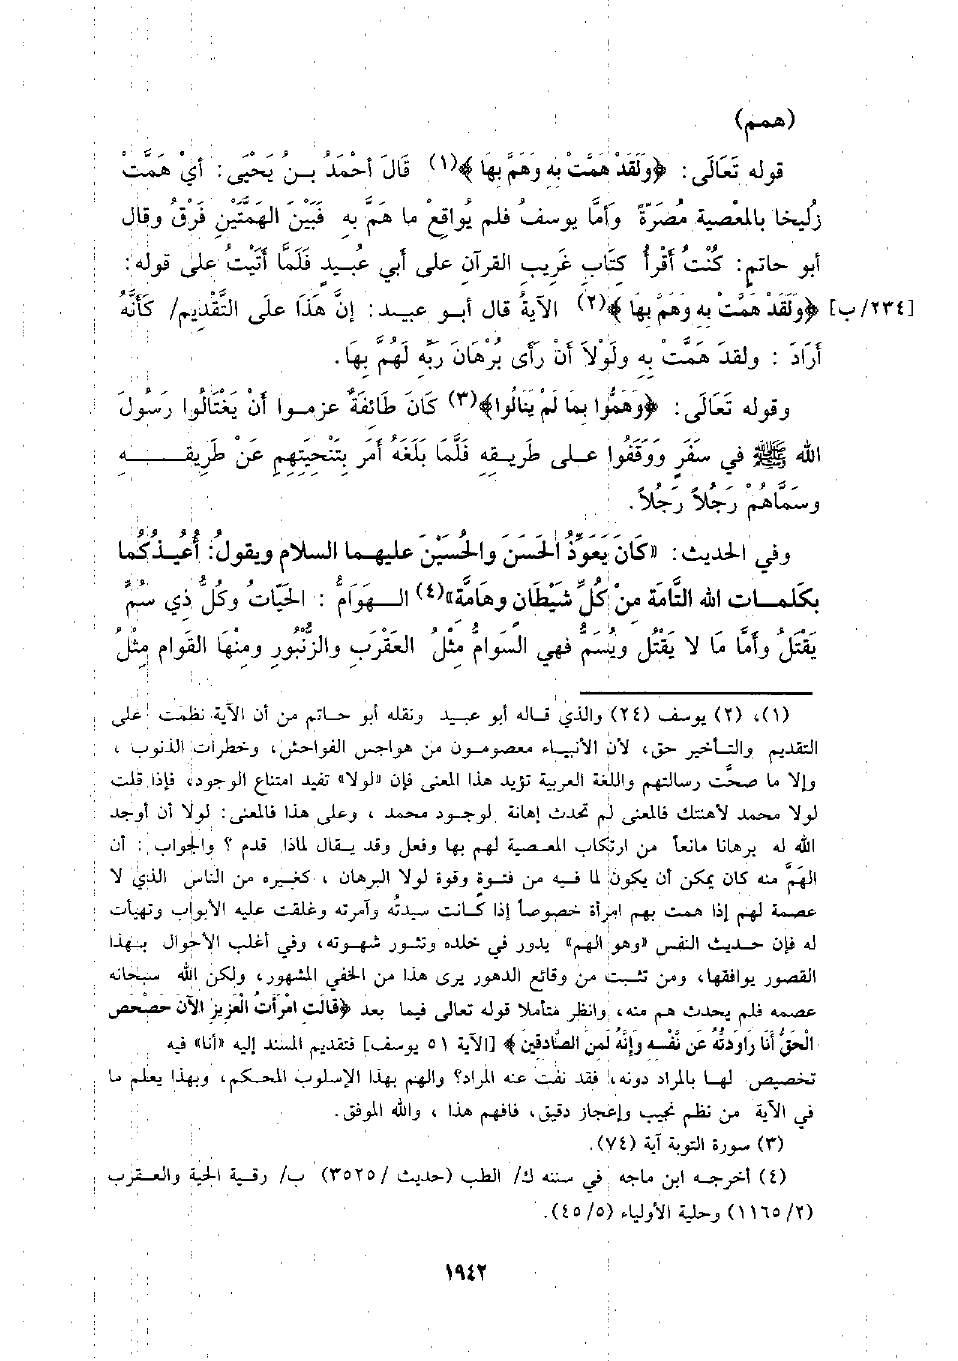 (همم)
قوله تَعَالَى: ﴿وَلَقَدْ هَمَّتْ بِهِ وَهَمَّ بِهَا﴾(١) قَالَ أَحْمَدُ بـنُ يَحْيَى: أيْ هَمَّتْ
زُلَيخا بالمعْصية مُصَرَّةً وَأمَّا يوسفُ فلم يُواقِعْ ما هَمَّ به فَبَيْنَ الهَمَّتَيْنِ فَرْقٌ وقال
أبو حاتم: كُنْتُ أَقْرأُ كِتَابِ غَرِيبِ القرآنِ على أبي عُبـيدٍ فَلَمَّا أتَيْتُ على قوله:
[٢٣٤/ب] ﴿وَلَقَدْ هَمَّتْ بِهِ وَهَمَّ بِهَا﴾(٢) الآيةُ قال أبـو عبيـد: إنَّ هَذَا علَى التَّقْدِيمِ/ كَأنَّهُ
أرَادَ : ولقدَ هَمَّتْ بِهِ ولَوْلاَ أنْ رَأى بُرْهَانَ رَبِّهِ لَهَمَّ بِهَا.
وقوله تَعَالَى: ﴿وَهَمُّوا بِمَا لَمْ يَنَالُوا﴾(٣) كَانَ طَائِفَةٌ عزمـوا أنْ يَغْتَالُوا رَسُولَ
الله ﷺ في سفَرٍ وَوَقَفُوا علـى طَرِيـقِهِ فَلَّمَا بَلَغَهُ أمَرَ بِتَنْحِيَتِهِم عَنْ طَرِيقِـــــهِ
وسَمَّاهُمْ رَجُلاً رَجُلاً.
وفي الحديث: «كَانَ يَعَوِّذُ الحَسَنَ والحُسَيْنَ عليهـما السلام ويقولُ: أُعيـذُكُما
بكَلمـات الله التَّامَة مِنْ كُلِّ شَيْطَانٍ وهَامَّة»(٤) الـهوَامُّ : الحَيَّاتُ وكُلُّ ذِي سُمٍّ
يَقْتَلُ وأمَّا مَا لا يَقْتُل ويُسَمُّ فهي السَوامُّ مثْلُ العَقْرَبِ والزُّنْبُورِ ومنْهَا القَوام مِثْلُ
(١)، (٢) يوسف (٢٤) والذي قـاله أبو عبـيد ونقله أبو حـاتم من أن الآية نظمت على
التقديم والتـأخير حق، لأن الأنبيـاء معصومـون من هواجس الفواحش، وخطرات الذنوب ،
وإلا ما صحَّت رسالتهم واللغة العربية تؤيد هذا المعنى فإن «لولا» تفيد امتناع الوجود، فإذا قلت
لولا محمد لأهنتك فالمعنى لم تحدث إهانة لوجـود محمد ، وعلى هذا فالمعنى: لولا أن أوجد
الله له برهانا مانعاً من ارتكاب المعـصية لهم بها وفعل وقد يـقال لماذا قدم ؟ والجواب : أن
الهَمَّ منه كان يمكن أن يكون لما فـيه من فتـوةٍ وقوة لولا البرهان ، كغـيره من الناس الذي لا
عصمة لهم إذا همت بهم امرأة خصوصاً إذا كـانت سيدتُه وآمرته وغلقت عليه الأبواب وتهيأت
له فإن حـديث النفس «وهو الهم» يدور في خلده وتثـور شهـوته، وفي أغلب الأحوال بـهذا
القصور يوافقها، ومن تثـبت من وقائع الدهور يرى هذا من الخفي المشهور، ولكن الله سبحانه
عصمه فلم يحدث هم منه، وانظر متأملا قوله تعالى فيما بعد ﴿قَالَتِ امْرَأَتُ الْعَزِيزِ الآنَ حَصْحَصَ
الْحَقُّ أَنَا رَاوَدتُّهُ عَن نَّفْسِهِ وَإِنَّهُ لَمِنَ الصَّادِقِينَ ﴾ [الآية ٥١ يوسف] فتقديم المسند إليه «أنا» فيه
تخصيص لهـا بالمراد دونه، فقد نفت عنه المراد؟ والهم بهذا الإسلوب المحـكم، وبهذا يعلم ما
في الآية من نظم نجيب وإعجاز دقيق، فافهم هذا ، والله الموفق.
(٣) سورة التوبة آية (٧٤).
(٤) أخرجـه ابن ماجه في سننه ك/ الطب (حديث / ٣٥٢٥) ب/ رقـية الحية والعـقرب
(٢/ ١١٦٥) وحلية الأولياء (٥/ ٤٥).
١٩٤٢